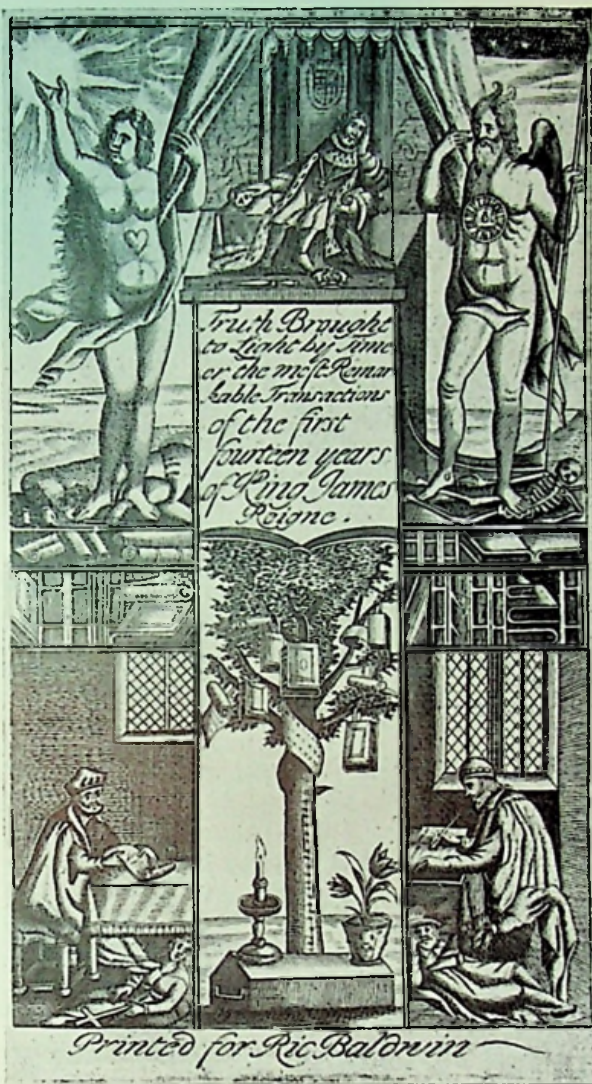 Truth Brought
to Light by Time
or the most Remar
kable Transactions
of the first
fourteen years
of King James
Reigne.
Printed for Ric Baldwin